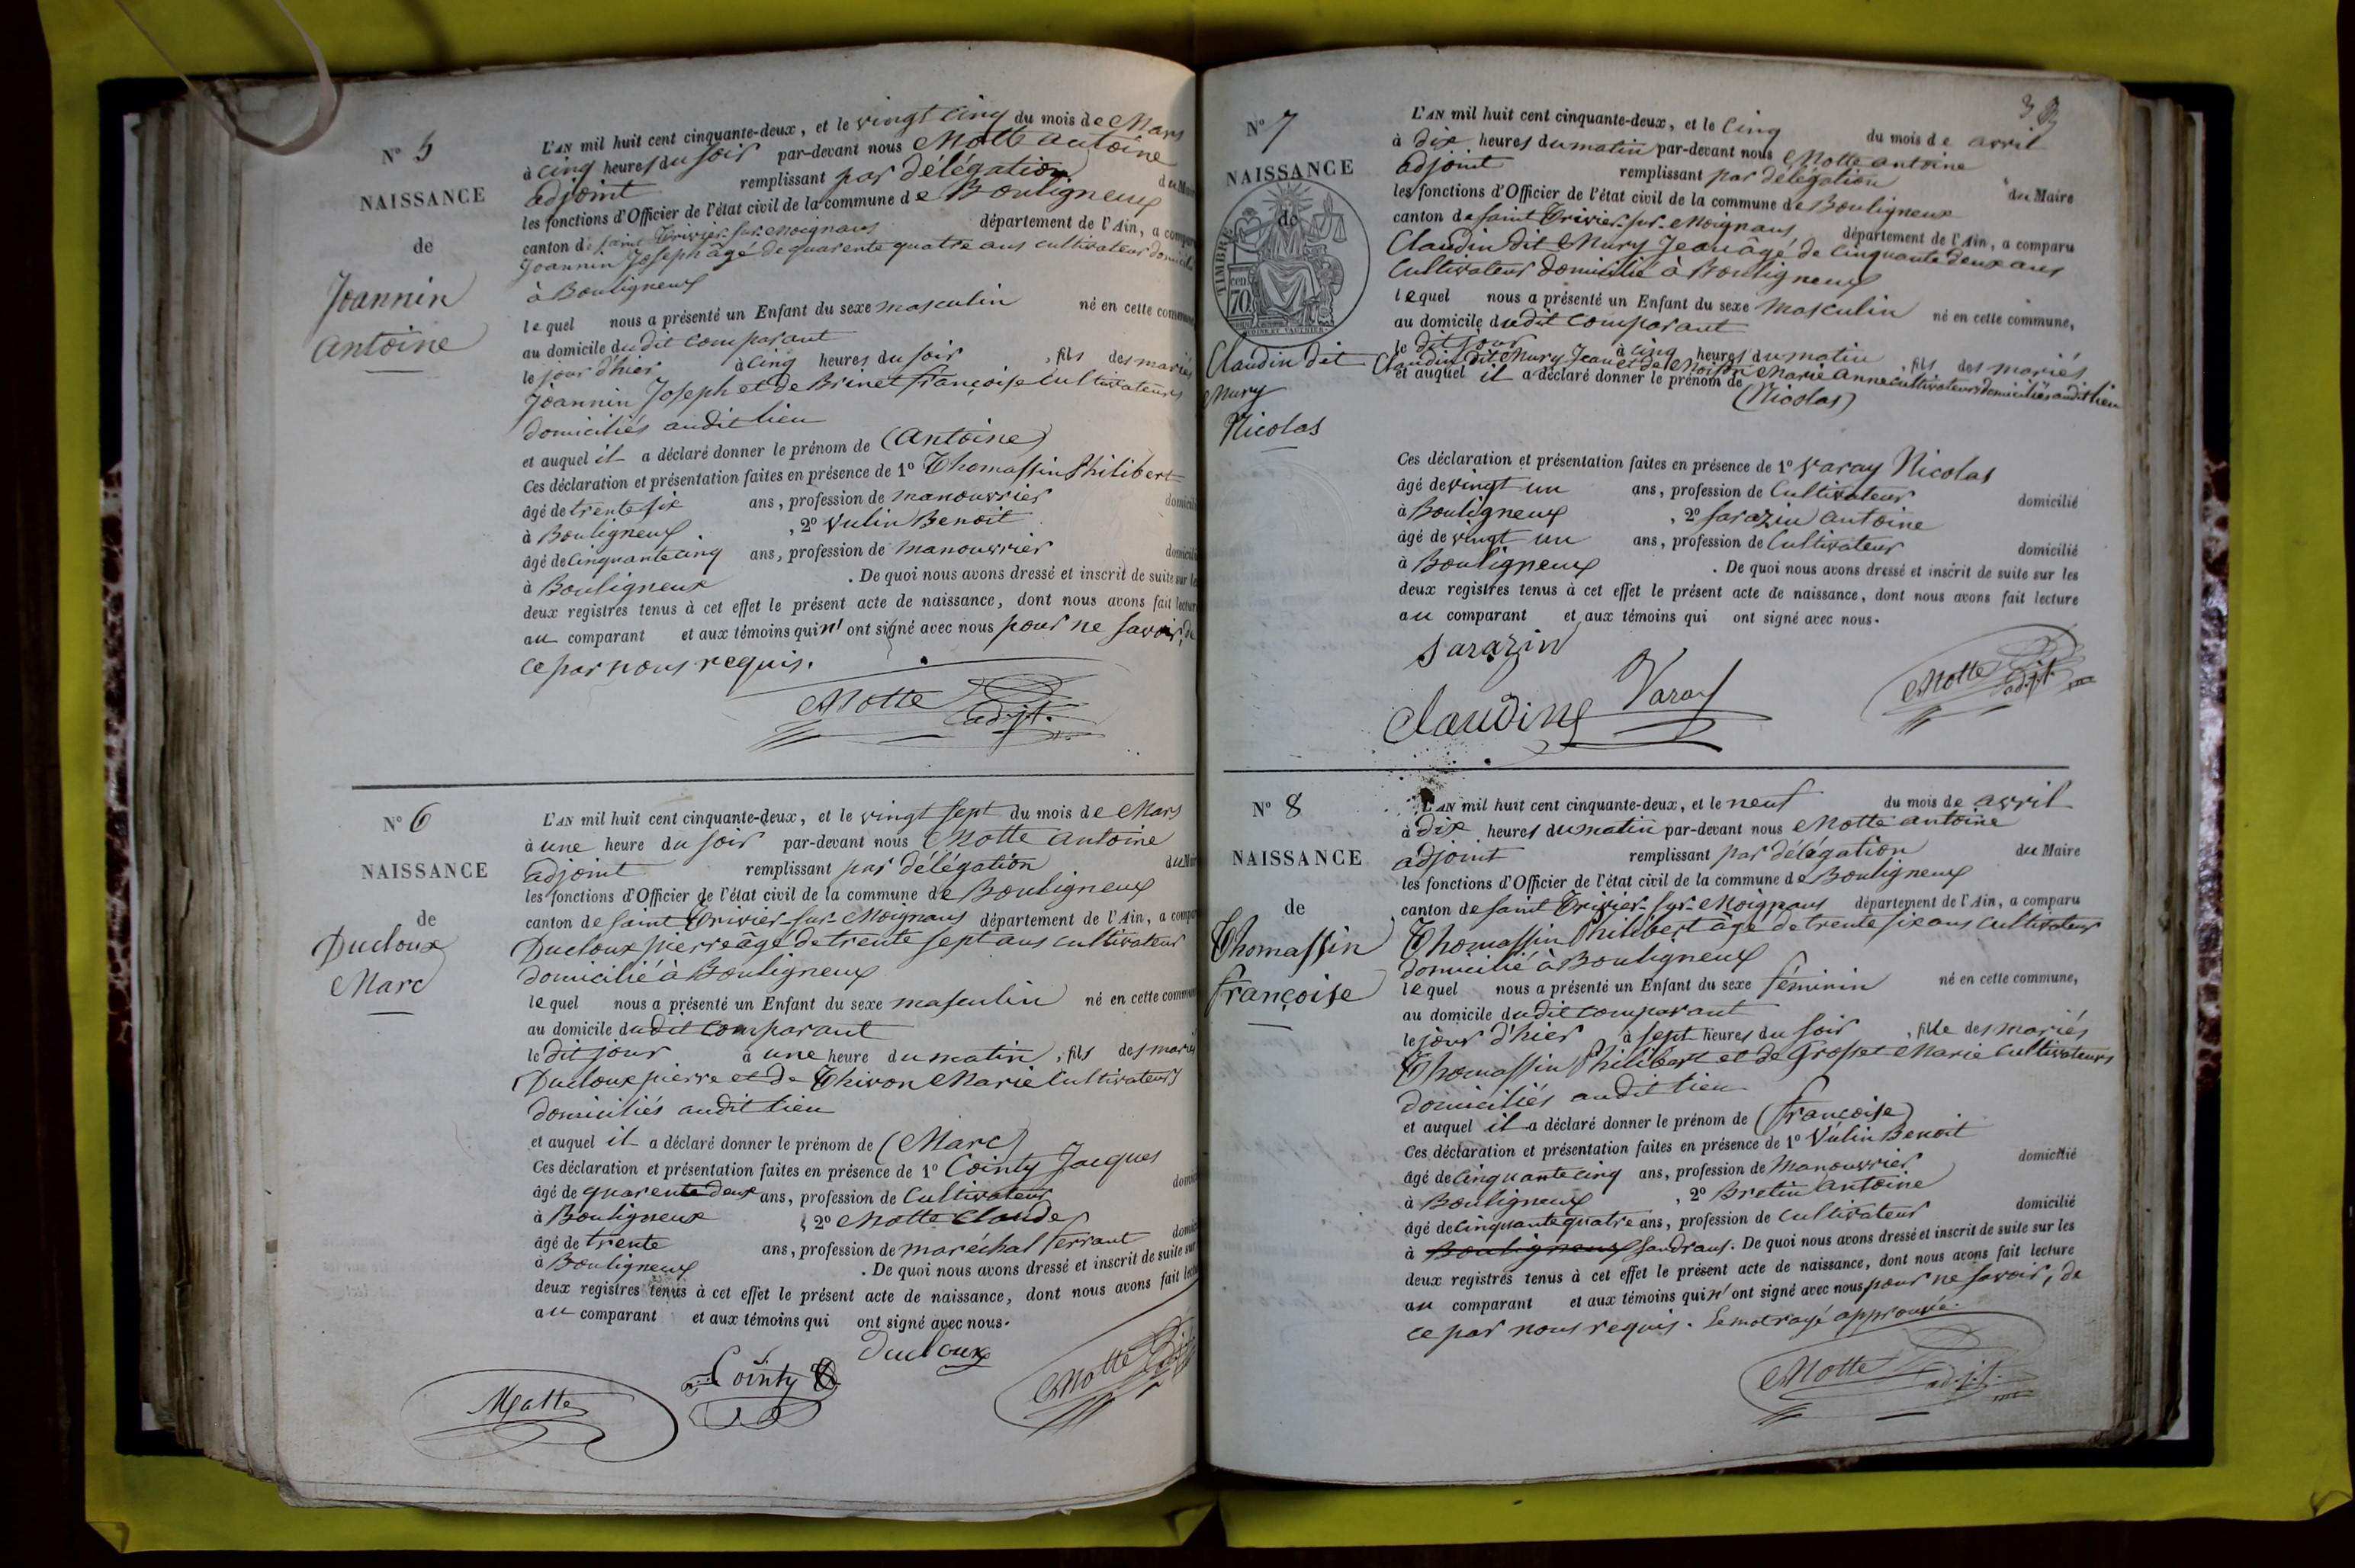 N° 5
NAISSANCE
de
Joannin
Antoine
L'AN mil huit cent cinquante-deux, et le vingt cinq du mois de Mars
à cinq heures du soir par-devant nous Motte antoine
adjoint remplissant par délégation du Maire
les fonctions d'Officier de l'état civil de la commune de Bouligneux
canton de Saint Trivier-sur-Moignans département de l'Ain, a compar
Joannin Joseph âgé de quarente quatre ans cultivateur domicilié
à Bouligneux
lequel nous a présenté un Enfant du sexe masculin né en cette commune
au domicile dudit comparant
le jour d'hier à cinq heures du soir, fils des mariés
Joannin Joseph et de Brinet françoise Cultivateurs
domiciliés audit lieu
et auquel il a déclaré donner le prénom de (Antoine)
Ces déclaration et présentation faites en présence de 1° Thomassin Philibert
âgé de trente six ans, profession de manouvrier domicili
à Bouligneux, 2° Vulin Benoit
âgé de cinquante cinq ans, profession de manouvrier domicili
à Bouligneux. De quoi nous avons dressé et inscrit de suite sur le
deux registres tenus à cet effet le présent acte de naissance, dont nous avons fait lectur
au comparant et aux témoins qui n'ont signé avec nous pour ne savoir, de
ce par nous requis.
Motte adjt.
N° 6
NAISSANCE
de
Ducloux
Marc
L'AN mil huit cent cinquante-deux, et le vingt sept du mois de Mars
à une heure du soir par-devant nous Motte antoine
adjoint remplissant par délégation du Mair
les fonctions d'Officier de l'état civil de la commune de Bouligneux
canton de Saint Trivier-sur-Moignans département de l'Ain, a compa
Ducloux pierre âgé de trente sept ans cultivateur
domicilié à Bouligneux
lequel nous a présenté un Enfant du sexe masculin né en cette commun
au domicile dudit comparant
le dit jour à une heure du matin, fils des mariés
Ducloux pierre et de Thivon Marie Cultivateurs
domiciliés audit lieu
et auquel il a déclaré donner le prénom de (Marc)
Ces déclaration et présentation faites en présence de 1° Cointy Jacques
âgé de quarente deux ans, profession de Cultivateur domici
à Bouligneux, 2° Motte Claude
âgé de trente ans, profession de maréchal ferrant domici
à Bouligneux. De quoi nous avons dressé et inscrit de suite sur
deux registres tenus à cet effet le présent acte de naissance, dont nous avons fait lectu
au comparant et aux témoins qui ont signé avec nous.
Ducloux
Cointy
Matte
Motte
3
N° 7
NAISSANCE
de
TIMBRE
70
Claudin dit
Mury
Nicolas
L'AN mil huit cent cinquante-deux, et le Cinq du mois de avril
à dix heures du matin par-devant nous Motte antoine
adjoint remplissant par délégation du Maire
les fonctions d'Officier de l'état civil de la commune de Bouligneux
canton de Saint Trivier-sur-Moignans département de l'Ain, a comparu
Claudin dit Mury Jean âgé de Cinquante deux ans
Cultivateur domicilié à Bouligneux
lequel nous a présenté un Enfant du sexe masculin né en cette commune,
au domicile dudit comparant
le dit jour à cinq heures du matin, fils des mariés
Claudin dit Mury Jean et de Marie Anne cultivateurs domiciliés audit lieu
et auquel il a déclaré donner le prénom de (Nicolas)
Ces déclaration et présentation faites en présence de 1° Varay Nicolas
âgé de vingt un ans, profession de Cultivateur domicilié
à Bouligneux, 2° Sarazin Antoine
âgé de vingt un ans, profession de Cultivateur domicilié
à Bouligneux. De quoi nous avons dressé et inscrit de suite sur les
deux registres tenus à cet effet le présent acte de naissance, dont nous avons fait lecture
au comparant et aux témoins qui ont signé avec nous.
Sarazin
Claudin Varay
Motte adjt.
N° 8
NAISSANCE
de
Thomassin
françoise
L'AN mil huit cent cinquante-deux, et le neuf du mois de avril
à dix heures du matin par-devant nous Motte antoine
adjoint remplissant par délégation du Maire
les fonctions d'Officier de l'état civil de la commune de Bouligneux
canton de Saint Trivier-sur-Moignans département de l'Ain, a comparu
Thomassin Philibert âgé de trente six ans cultivateur
domicilié à Bouligneux
lequel nous a présenté un Enfant du sexe féminin né en cette commune,
au domicile dudit comparant
le jour d'hier à sept heures du soir, fille des mariés
Thomassin Philibert et de Grosset Marie Cultivateurs
domiciliés audit lieu
et auquel il a déclaré donner le prénom de (françoise)
Ces déclaration et présentation faites en présence de 1° Vulin Benoit
âgé de cinquante cinq ans, profession de manouvrier domicilié
à Bouligneux, 2° Bretin Antoine
âgé de cinquante quatre ans, profession de Cultivateur domicilié
à Bouligneux Sandrans. De quoi nous avons dressé et inscrit de suite sur les
deux registres tenus à cet effet le présent acte de naissance, dont nous avons fait lecture
au comparant et aux témoins qui n'ont signé avec nous pour ne savoir, de
ce par nous requis. Le mot rayé approuvé.
Motte adjt.